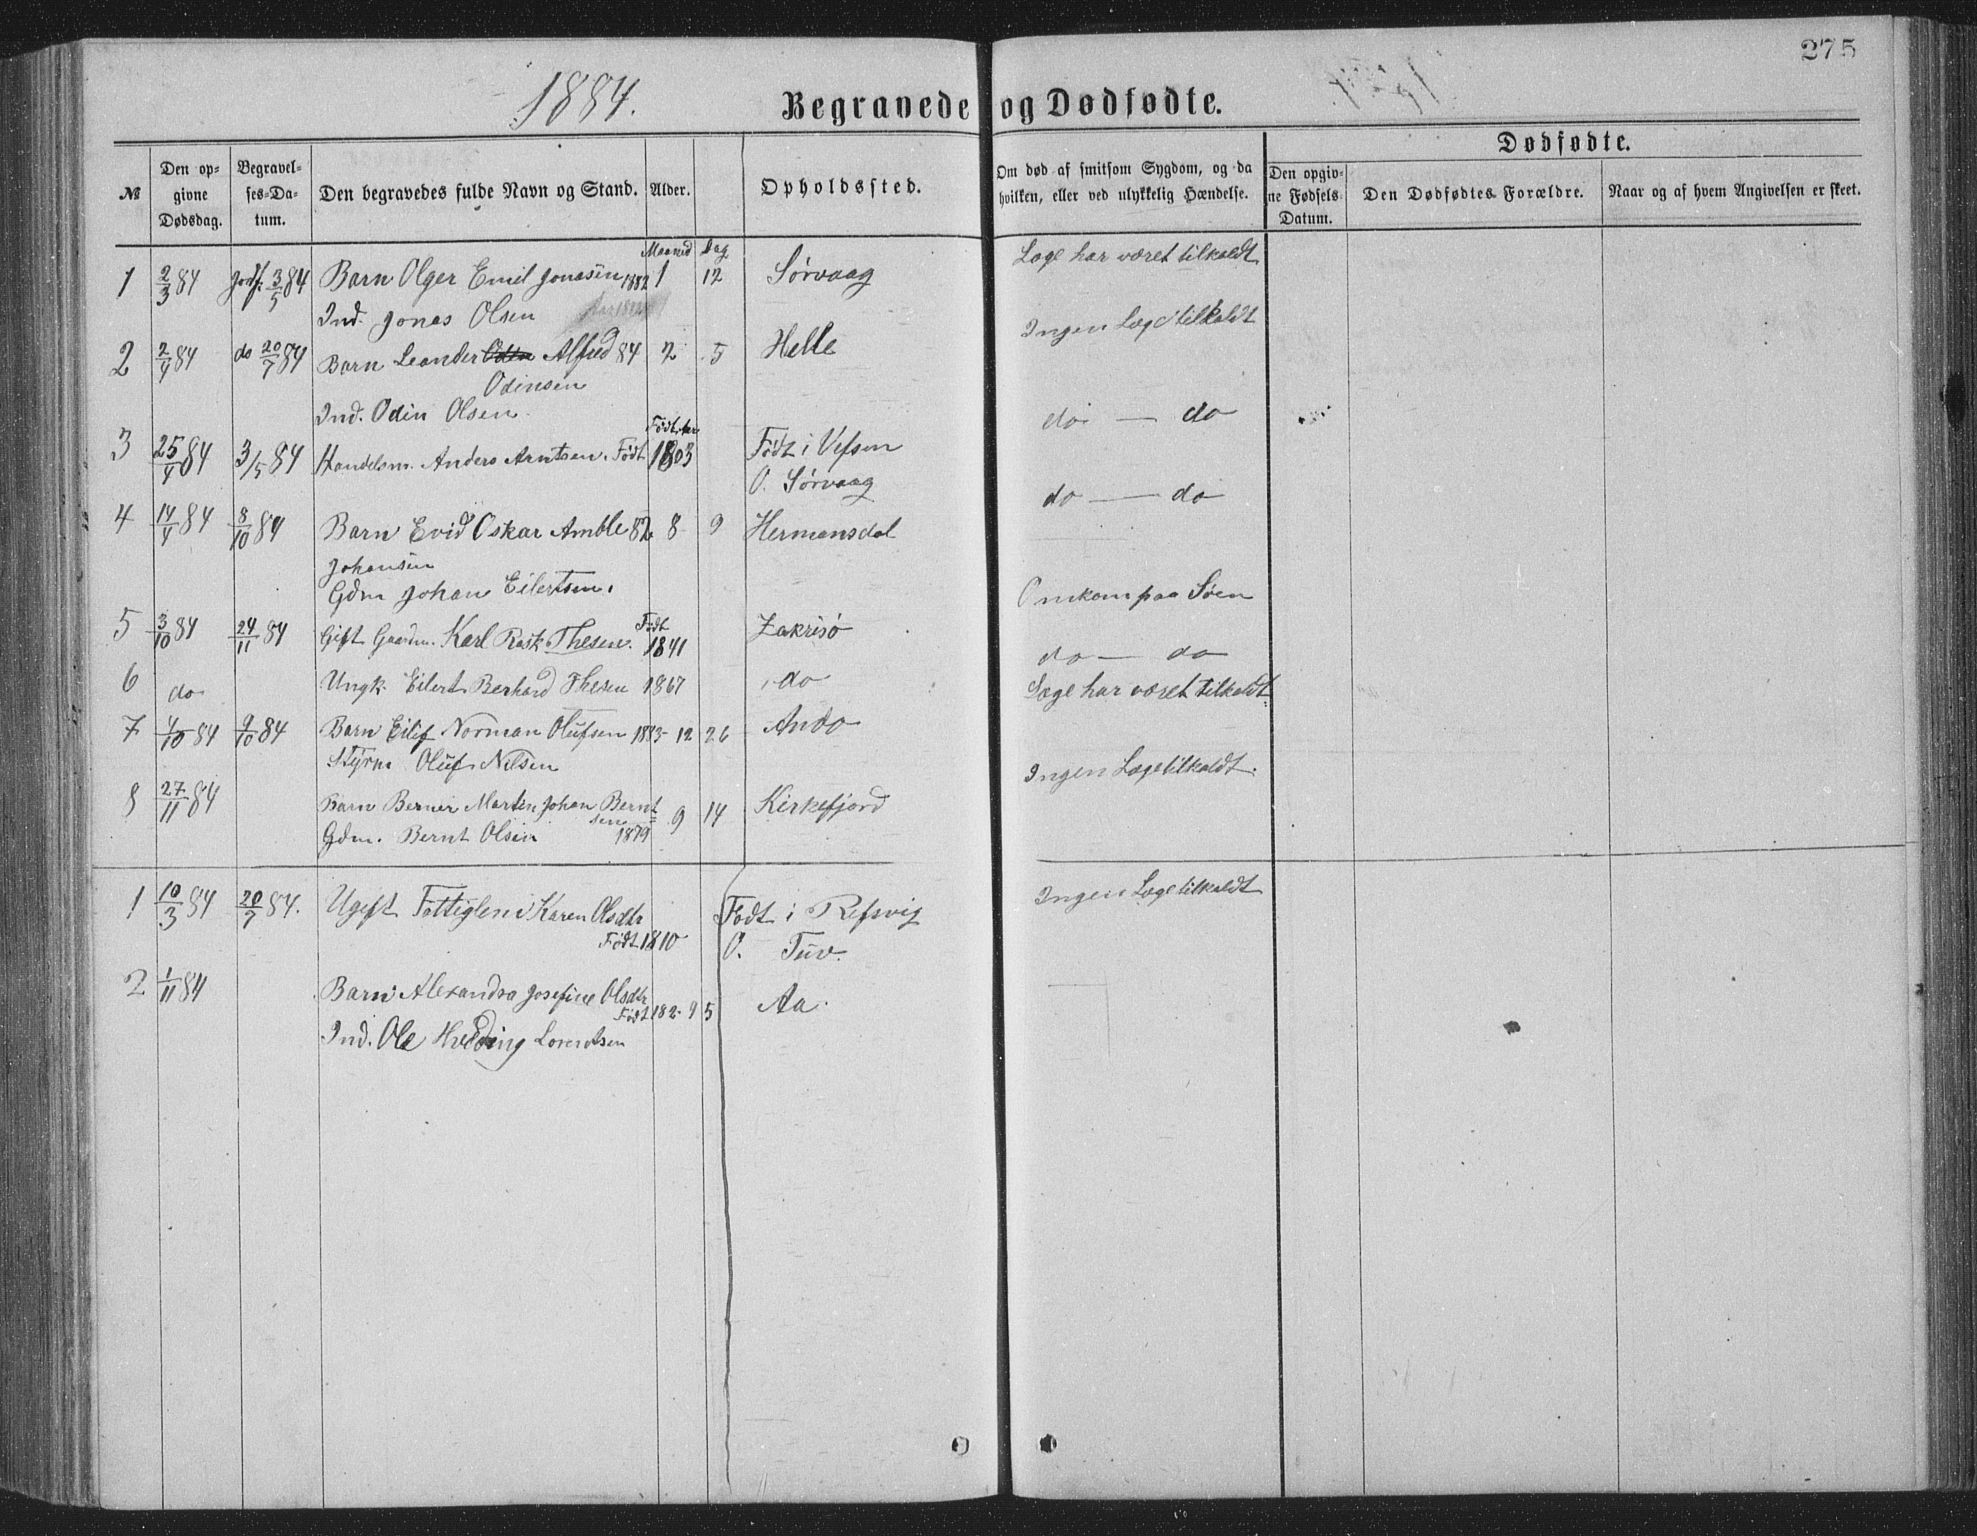 275
1884.
Begravede og Dødfødte.
Dødfødte.
No
Den op-
givne
Dødsdag.
Begravel-
ses-Da-
tum.
Den begravedes fulde Navn og Stand.
Alder.
Opholdssted.
Om død af smitsom Sygdom, og da
hvilken, eller ved ulykkelig Hændelse.
Den opgiv-
ne Fødsels-
Datum.
Den Dødfødtes Forældre.
Naar og af hvem Angivelsen er skeet.
Maaned Dag
1 2/3 84 Jordf. 3/5 84 Barn Olger Emil Jonasen 1882 1 12 Sørvaag Læge har været tilkaldt
Ind. Jonas Olsen
2 2/4 84 do 20/7 84 Barn Leander Alfred 84 2 5 Helle Ingen Læge tilkaldt
Odinsen
Ind. Odin Olsen
3 25/4 84 3/5 84 Handelsm. Anders Arntsen. Født 1803 Født i Vefsen do — do
O. Sørvaag
4 14/4 84 8/10 84 Barn Evid Oskar Amble 82 8 9 Hermansdal do — do
Johansen
Gdm Johan Eilertsen.
5 3/10 84 24/11 84 Gift Gaardm. Karl Rask Thesen. Født 1841 Zakrisø Omkom paa Søen
6 do Ungk. Eilert Berhard Thesen 1867 do do — do
7 4/10 84 9/10 84 Barn Eilif Norman Olufsen 1883 - 12 26 Ando Læge har været tilkaldt
Styrm Oluf Nilsen
8 27/11 84 Barn Berner Marten Johan Bernt
sen 1879 9 14 Kirkefjord Ingen Læge tilkaldt.
Gdm. Bernt Olsen
1 10/3 84 20/7 84. Ugift Fattiglem Karen Olsdtr Født i Refsvig Ingen Læge tilkaldt
Født 1810 O. Tuv.
2 1/11 84 Barn Alexandra Josefine Olsdtr
Født 182 - 9 5 Aa.
Ind. Ole Hvedding Lorentsen